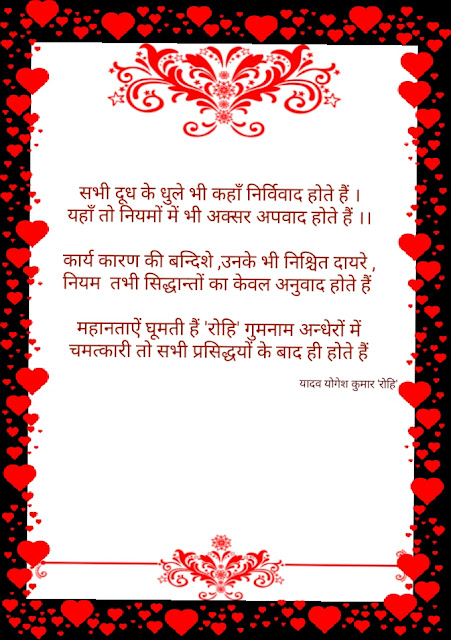 सभी दूध के धुले भी कहाँ निर्विवाद होते हैं ।
यहाँ तो नियमों में भी अक्सर अपवाद होते हैं ।।
कार्य कारण की बन्दिशे ,उनके भी निश्चित दायरे ,
नियम तभी सिद्धान्तों का केवल अनुवाद होते हैं
महानताऐं घूमती हैं 'रोहि' गुमनाम अन्धेरों में
चमत्कारी तो सभी प्रसिद्धयों के बाद ही होते हैं
यादव योगेश कुमार 'रोहि'